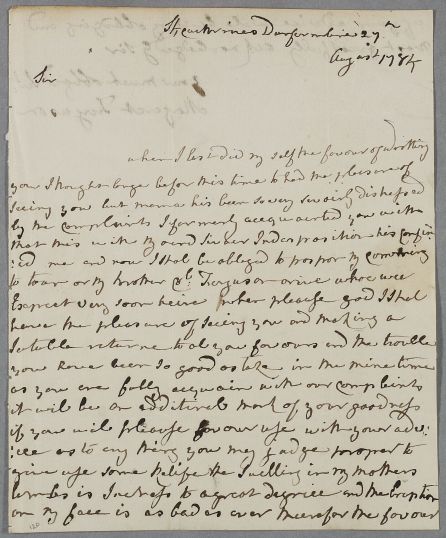 St Catherines Dunfermline 27th
August 1784
Sir
when I last did my self the favour of writting
you I thought long befor this time to had the pleasure of
seeing you but mama has been so very
by the complaints I formerly acquainted you with
that this with my aind Indisposition his confin
:ed me and now I shal be obleged to my comming
to toun my brother Ct Ferguson arive whoe wee
Expect very soon heire when please god I shal
have the pleasure of seeing you and making a
sutable returne to al you favours and the trouble
you have been so good as take in the mine time
as you are fully acquain with our complaints
it will be an additinal mark of your goodness
if you will please favour use with your advi:
:ce as to any thing you may judge proper to
give use some Relife the Suelling in my mothers
is to a great degree and the Eruption
on my face is as bad as ever therfor the favour